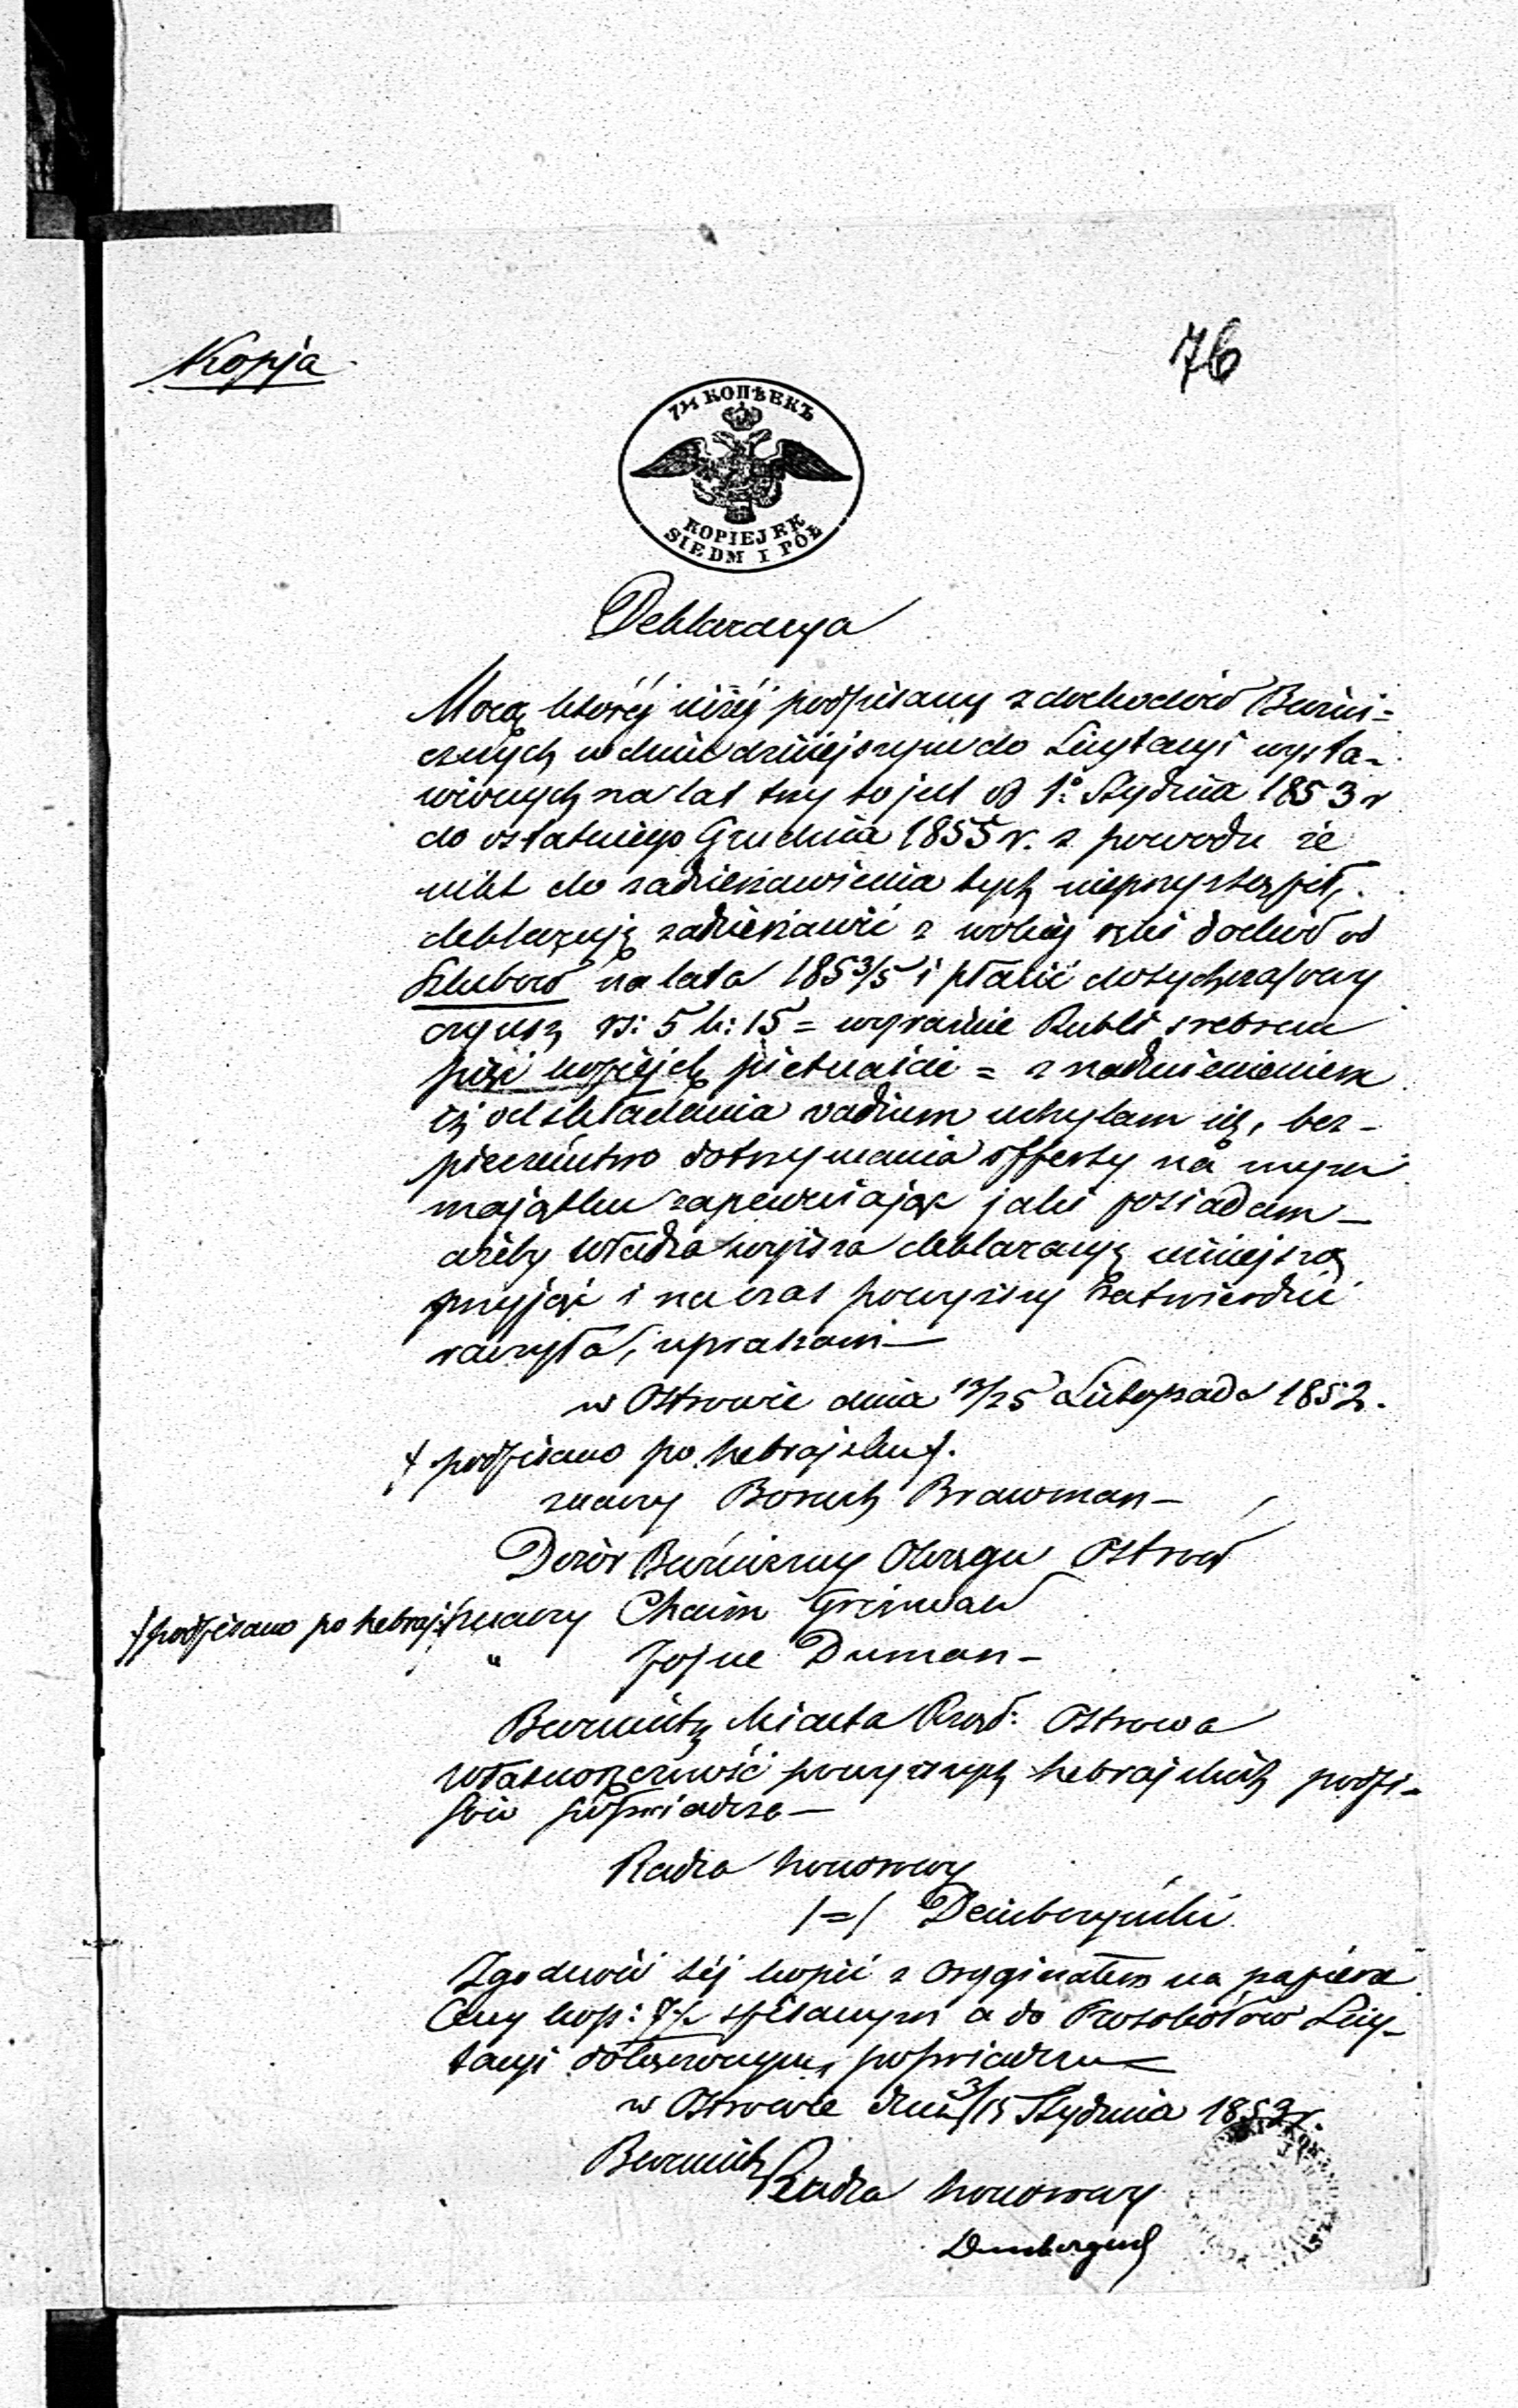 Kopja
76
7½ КОПѢЕКЪ
KOPIEJEK
SIEDM I PÓŁ
Deklaracya
Mocą któréj niżéj podpisany z dochodów Bużni=
cznych w dniu dzisiejszym do Licytacyi wysta-
wionych na lat trzy to jest od 1° Stycznia 1853 r
do ostatniego Grudnia 1855 r. z powodu że
nikt do zadzierżawienia tych nieprzystąpił,
deklaruję zadzierżawić z wolnéj ręki dochód od
Szlubów na lata 1853/5 i płacić dotychczasowy
czynsz rs: 5 k: 15 = wyraźnie Rubli srebrem
pięć kopiejek piętnaście = z nadmienieniem
iż od składania vadium uchylam się, bez-
pieczeństwo dotrzymania offerty na mym
majątku zapewniając jaki posiadam –
ażeby Władza wyższa deklaracyą niniejszą
przyjąć i na czas powyższy zatwierdzić
raczyła, upraszam –
w Ostrowie dnia 13/25 Listopada 1852.
/ podpisano po hebrajsku /.
znaczy Boruch Brawman –
Dozór Bużniczny Okręgu Ostrów
/podpisano po hebraj:/ znaczy Chaim Grinwald
" Josue Duman –
Burmistrz Miasta Rząd: Ostrowa
Własnoręczność powyższych hebrajskich podpi-
sów poświadcza –
Radca honorowy
/=/ Dembczyński
Zgodność téj kopii z oryginałem na papierze
Ceny kop: 7½ spisanym a do Protokółów Licy-
tacyi dołączonym, poświadczam
w Ostrowie dnia 3/15 Stycznia 1853 r.
Burmistrz Radca honorowy